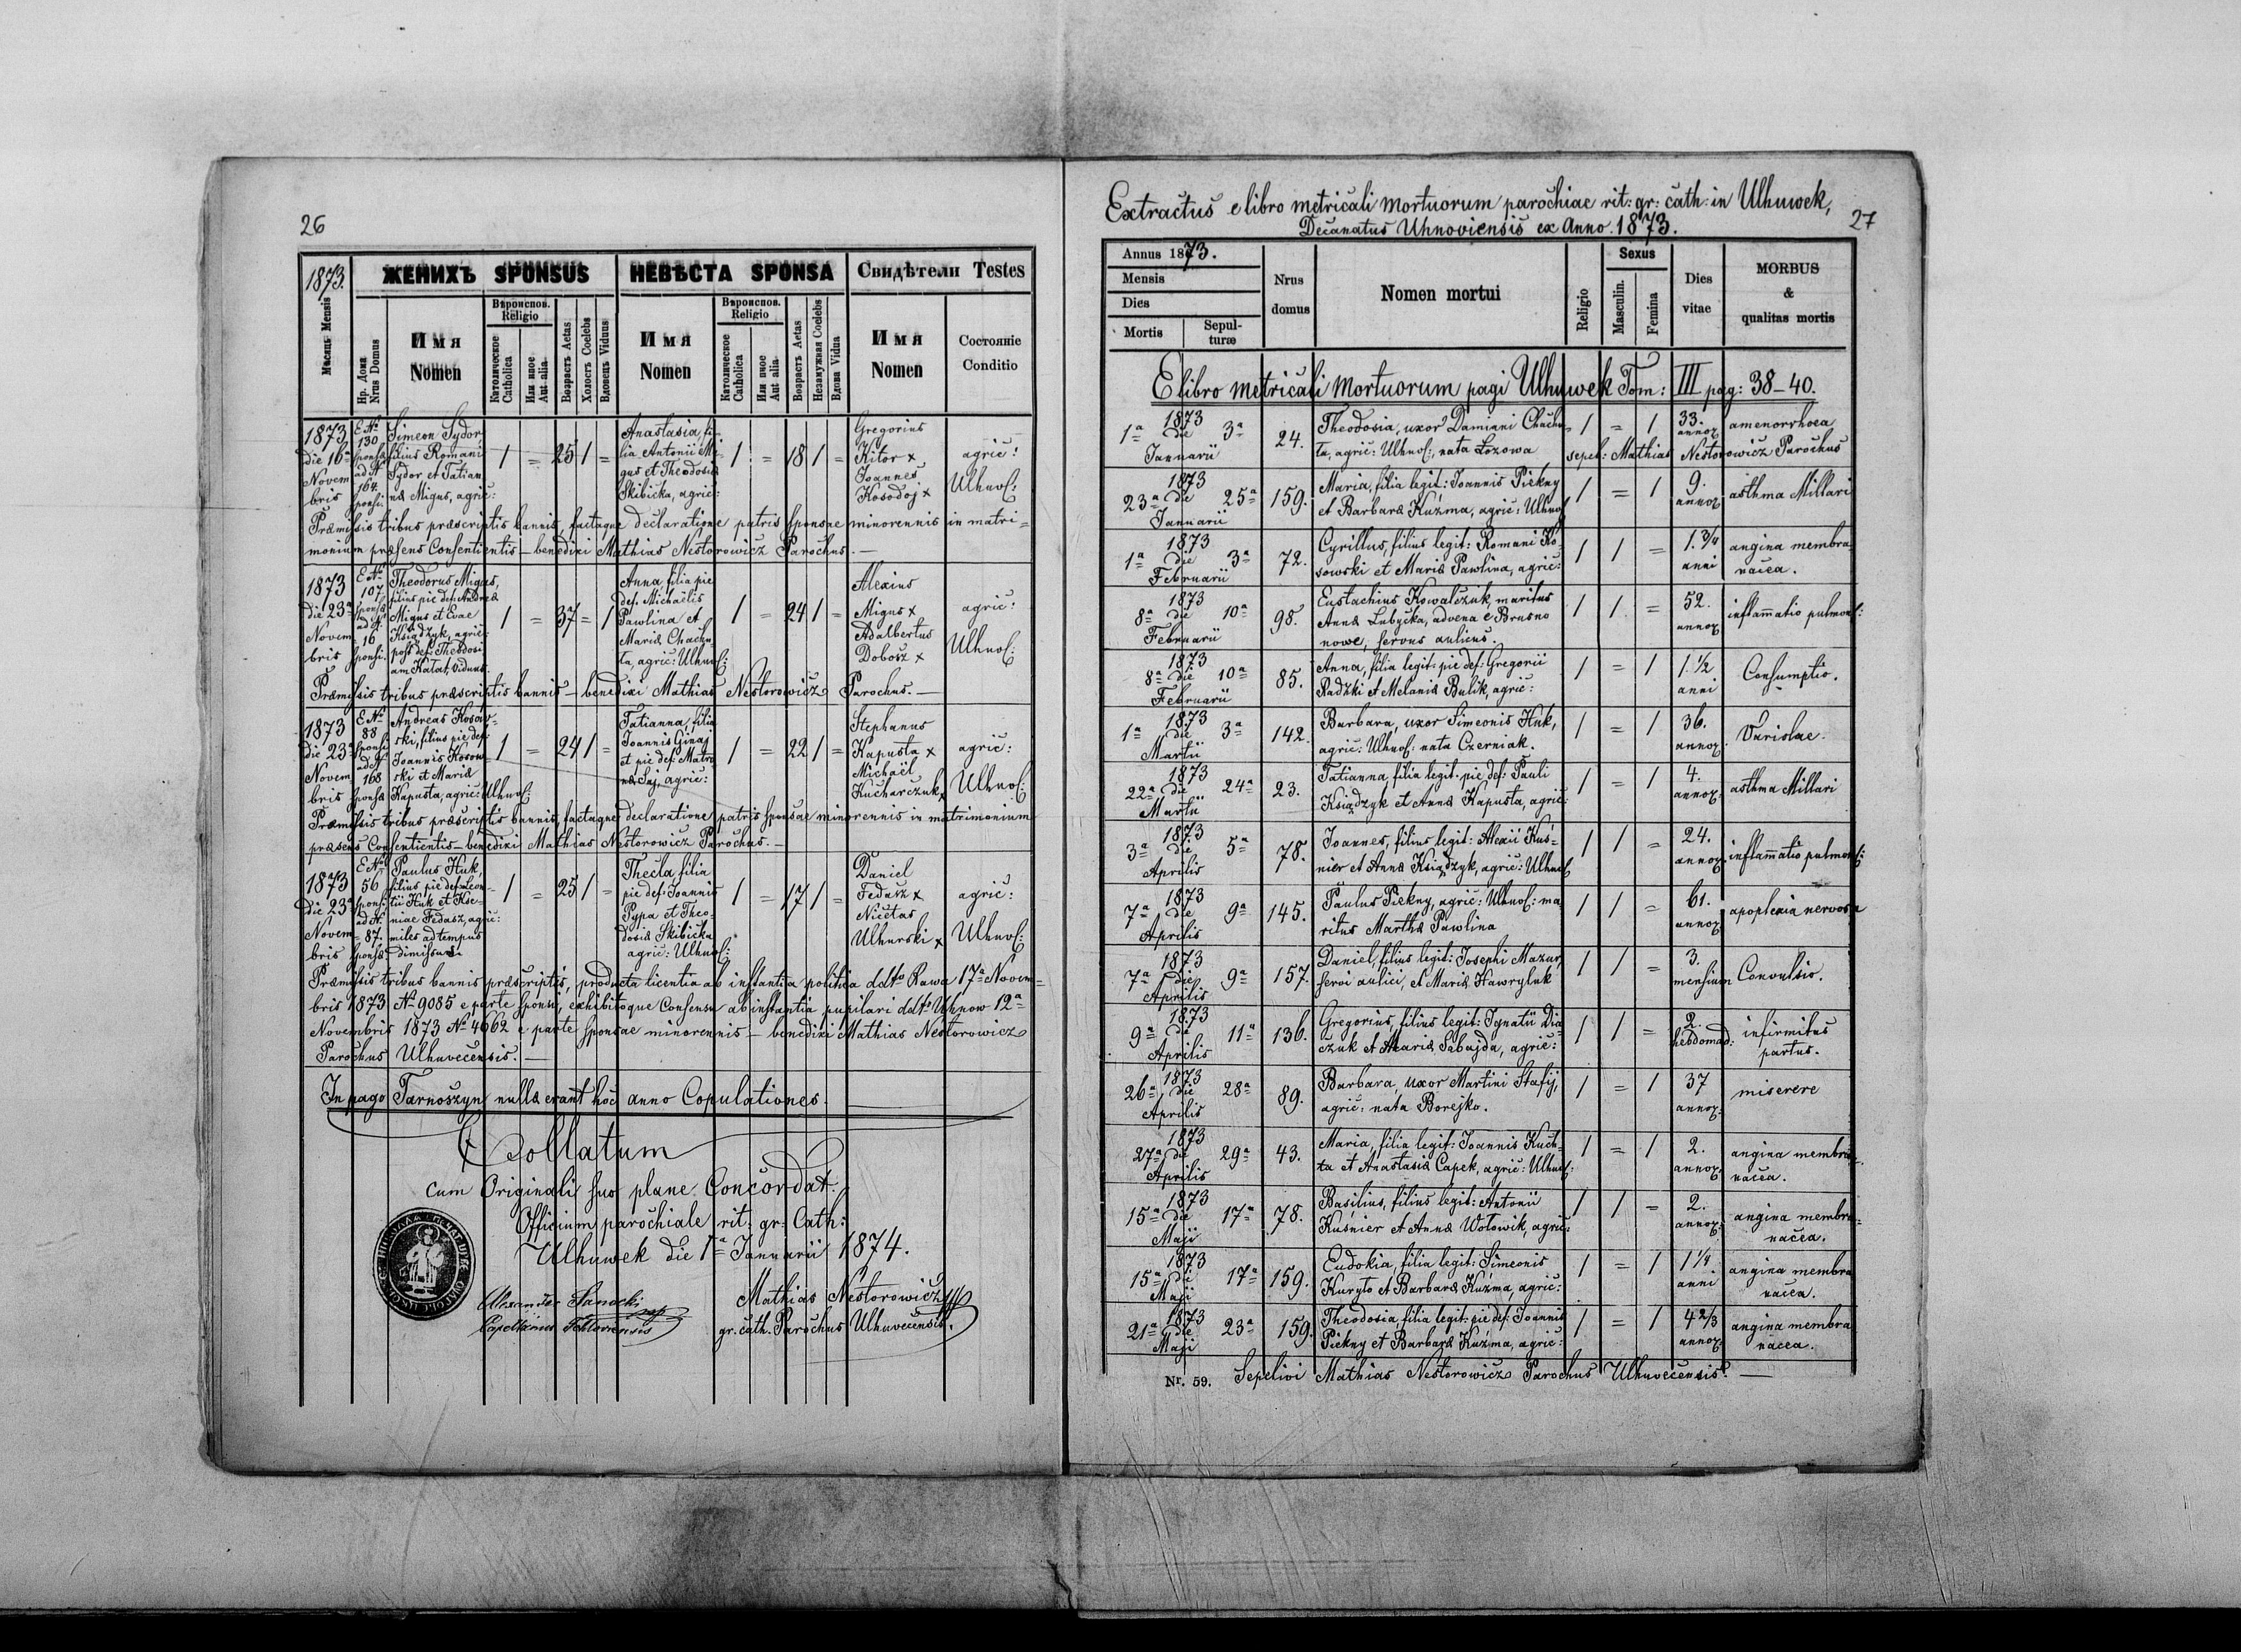 26
1873.
Мѣсяцъ Mensis
ЖЕНИХЪ SPONSUS
НЕВѢСТА SPONSA
Свидѣтели Testes
Нр. Дома
Nrus Domus
Имя
Nomen
Вѣроиспов.
Religio
Католическое
Catholica
Или иное
Aut alia
Возрастъ Aetas
Холостъ Coelebs
Вдовецъ Viduus
Имя
Nomen
Вѣроиспов.
Religio
Католическое
Catholica
Или иное
Aut alia
Возрастъ Aetas
Незамужная Coelebs
Вдова Vidua
Имя
Nomen
Состояніе
Conditio
1873
die 16a
Novem
bris
E No
130
sponsa
ad N.
164.
sponsi.
Simeon Sydor
filius Romani
Sydor et Tatian
na Migus, agric:
1 = 25 1 =
Anastasia, fi-
lia Antonii Mi
gus et Theodosia
Skibicka, agric:
1 = 18 1 =
Gregorius
Kitor x
Joannes
Kosodoj x
agric:
Ulhuv:
Præmissis tribus præscriptis bannis, factaque declaratione patris sponsae minorennis in matri=
monium præsens Consentientis – benedixi Mathias Nestorowicz Parochus. —
1873
die 23a
Novem=
bris
E No
107
sponsa
ad N.
16
sponsi.
Theodorus Migus,
filius pie def. Andrea
Migus et Evae
Ksiądzyk, agric:
post def: Theodosi
am Kałat, viduus.
1 = 37 = 1
Anna, filia pie
def. Michaëlis
Pawlina et
Maria Chachu
ta, agric: Ulhuv:
1 = 24 1 =
Alexius
Migus x
Adalbertus
Dobosz x
agric:
Ulhuv:
Præmissis tribus præscriptis bannis – benedixi Mathias Nestorowicz Parochus. —
1873
die 23a
Novem
bris
E No
88
sponsi
ad N.
168
sponsa
Andreas Kosow-
ski, filius pie def:
Joannis Kosow
ski et Maria
Kapusta, agric: Ulhuv:
1 = 24 1 =
Tatianna, filia
Joannis Ginaj
et pie def: Matro
na Saj, agric:
1 = 22 1 =
Stephanus
Kapusta x
Michaël
Kucharczuk x
agric:
Ulhuv:
Præmissis tribus præscriptis bannis, factaque declaratione patris sponsae minorennis in matrimonium
præsens Consentientis – benedixi Mathias Nestorowicz Parochus. —
1873
die 23a
Novem=
bris
E No
56
sponsi
ad N.
87.
sponsa
Paulus Huk,
filius pie def. Leon-
tii Huk et Xe-
niae Fedasz, agric:
miles ad tempus
dimissus.
1 = 25 1 =
Thecla, filia
pie def: Joannis
Pypa et Theo-
dosia Skibicka
agric: Ulhuv:
1 = 17 1 =
Daniel
Fedasz x
Nicetas
Ulhurski x
agric:
Ulhuv:
Præmissis tribus bannis præscriptis, producta licentia ab instantia politica ddto Rawa 17a Novem=
bris 1873 No 9085 e parte sponsi, exhibitoque Consensu ab instantia pupilari ddto Uhnow 12a
Novembris 1873 No 4662 e parte sponsae minorennis – benedixi Mathias Nestorowicz
Parochus Ulhuvecensis. —
In pago Tarnoszyn nulla erant hoc anno Copulationes.
Collatum
cum Originali suo plane Concordat.
Officium parochiale rit: gr: Cath:
Ulhuwek die 1a Januarii 1874.
Alexander Sanocki
Mathias Nestorowicz
gr. cath. Parochus Ulhuvecensis.
Extractus e libro metricali mortuorum parochiae rit: gr: cath: in Ulhuwek,
Decanatus Uhnoviensis ex Anno 1873.
27
Annus 1873.
Mensis
Dies
Mortis
Sepul-
turæ
Nrus
domus
Nomen mortui
Religio
Sexus
Masculin.
Femina
Dies
vitae
MORBUS
&
qualitas mortis
E libro metricali mortuorum pagi Ulhuwek Tom: III pag: 38–40.
1873
1a die 3a
Januarii
24.
Theodosia, uxor Damiani Chachu-
ta, agric: Ulhuv:, nata Łozowa
1 = 1
33.
annor
amenorrhoea
sepel: Mathias Nestorowicz Parochus
1873
23a die 25a
Januarii
159.
Maria, filia legit: Joannis Piękny
et Barbara Kuzma, agric: Ulhuv:
1 = 1
9.
annor
asthma Millari
1873
1a die 3a
Februarii
72.
Cyrillus, filius legit: Romani Ko
sowski et Maria Pawlina, agric:
1 1 =
1.3/4
anni
angina membra
nacea.
1873
8a die 10a
Februarii
98.
Eustachius Kowalczuk, maritus
Anna Lubycka, advena e Brusno
nowe, servus aulicus.
1 1 =
52.
annor
inflammatio pulmon:
1873
8a die 10a
Februarii
85.
Anna, filia legit: pie def: Gregorii
Radzki et Melania Bulik, agric:
1 = 1
1.1/2
anni
Consumptio.
1873
1a die 3a
Martii
142.
Barbara, uxor Simeonis Huk,
agric: Ulhuv: nata Czerniak.
1 = 1
36.
annor
Variolae.
1873
22a die 24a
Martii
23.
Tatianna, filia legit. pie def: Pauli
Ksiądzyk et Anna Kapusta, agric:
1 = 1
4.
annor
asthma Millari
1873
3a die 5a
Aprilis
78.
Joannes, filius legit: Alexii Kuś-
nier et Anna Ksiądzyk, agric: Ulhuv:
1 1 =
24.
annor
inflammatio pulmon:
1873
7a die 9a
Aprilis
145.
Paulus Piękny, agric: Ulhuv: ma
ritus Martha Pawlina
1 1 =
61.
annor
apoplexia nervosa
1873
7a die 9a
Aprilis
157.
Daniel, filius legit: Josephi Mazur,
servi aulici, et Maria Hawryluk
1 1 =
3.
mensium
Convulsio.
1873
9a die 11a
Aprilis
136.
Gregorius, filius legit: Ignatii Dia-
czuk et Maria Sabajda, agric:
1 1 =
2.
hebdomad:
infirmitas
partus.
1873
26a die 28a
Aprilis
89.
Barbara, uxor Martini Stafij,
agric: nata Borejko.
1 = 1
37
annor
miserere
1873
27a die 29a
Aprilis
43.
Maria, filia legit: Joannis Kuch-
ta et Anastasia Capek, agric: Ulhuv:
1 = 1
2.
annor
angina membra-
nacea.
1873
15a die 17a
Maji
78.
Basilius, filius legit: Antonii
Kuśnier et Anna Wołowik, agric:
1 1 =
2.
annor
angina membra-
nacea.
1873
15a die 17a
Maji
159.
Eudokia, filia legit: Simeonis
Kuryło et Barbara Kuźma, agric:
1 = 1
1 1/4
anni
angina membra
nacea.
1873
21a die 23a
Maji
159.
Theodosia, filia legit: pie def: Joannis
Piękny et Barbara Kuźma, agric:
1 = 1
4 2/3
annor
angina membra
nacea.
Nr. 59.
Sepelivi Mathias Nestorowicz Parochus Ulhuvecensis. —